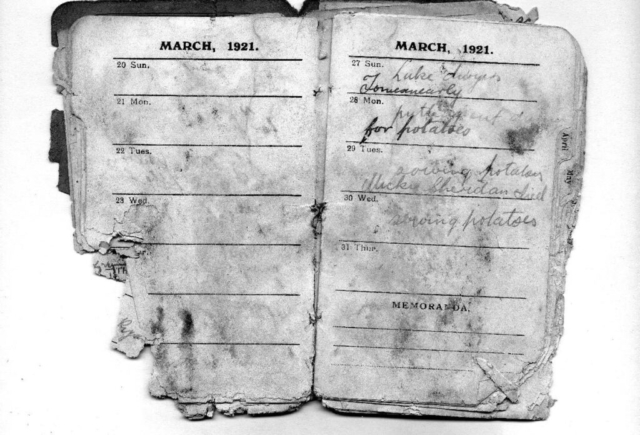 MARCH, 1921.
20 Sun.
21 Mon.
22 Tues.
23 Wed.
MARCH, 1921.
27 Sun.
Luke
28 Mon.
for potatoes
29 Tues.
sowing potatoes
Micky Sheridan died
30 Wed.
sowing potatoes
31 Thur.
MEMORANDA.
April
May